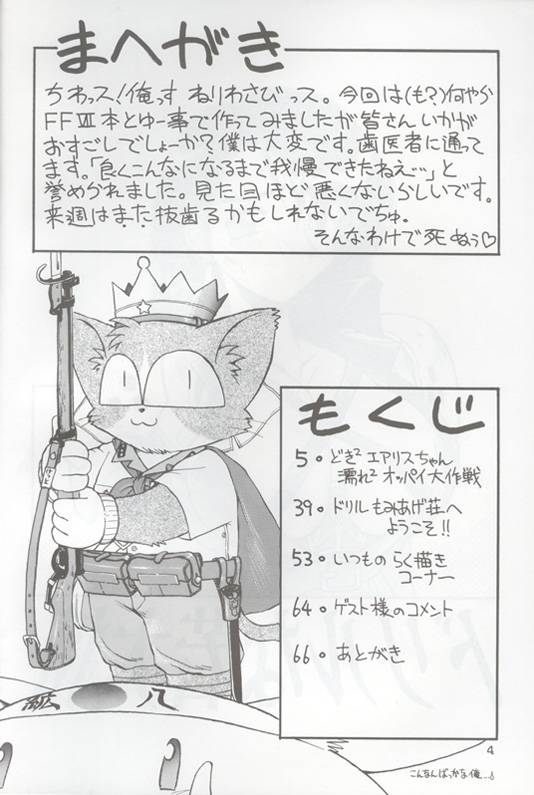 まへがき
ちわっス!俺っす ねりわさびっス。今回は(も?)何やら
FFⅦ本とゆー事で作ってみましたが皆さんいかが
おすごしでしょーか?僕は大変です。歯医者に通って
ます。「良くこんなになるまで我慢できたねえ…」と
誉められました。見た目ほど悪くないらしいです。
来週はまた抜歯るかもしれないでちゅ。
そんなわけで死ぬぅ♡
もくじ
5。どき² エアリスちゃん
濡れ² オッパイ大作戦
39。ドリルもみあげ荘へ
ようこそ!!
53。いつものらく描き
コーナー
64。ゲスト様のコメント
66。あとがき
八
4
こんなんばっかな俺…